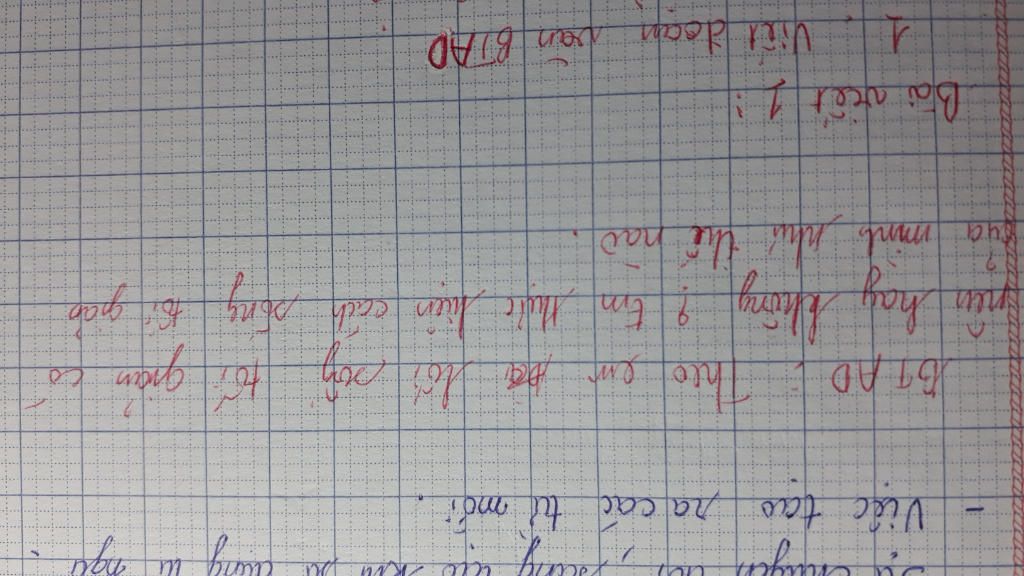 - Việc tạo ra các từ mới.
BTAD : Theo em lối sống tối giản có
nên hay không ? Em thực hiện cách sống tối giản
của mình như thế nào.
Bài viết 1 :
1. Viết đoạn văn BTAD